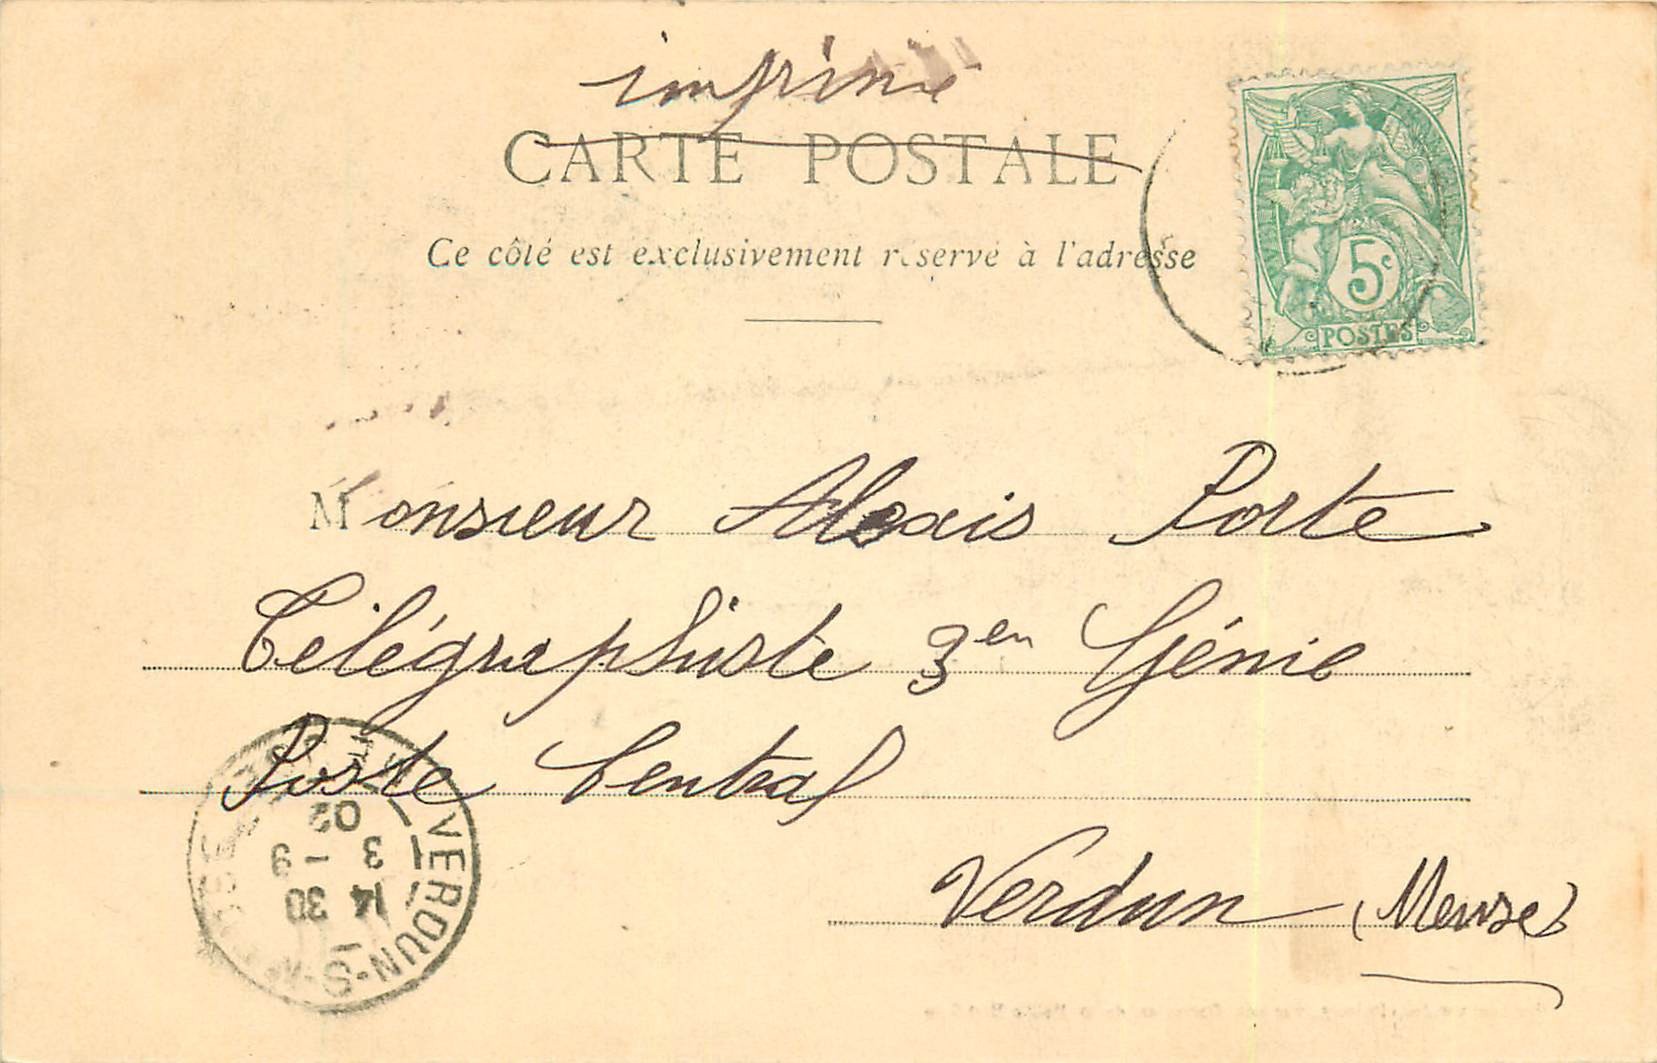 imprimé
CARTE POSTALE
Ce côté est exclusivement réservé à l'adresse
5c
POSTES
Monsieur Alexis Porte
Télégraphiste 3en Génie
Poste Central
Verdun (Meuse)
VERDUN-S-MEUSE
14 30
3 - 9
02